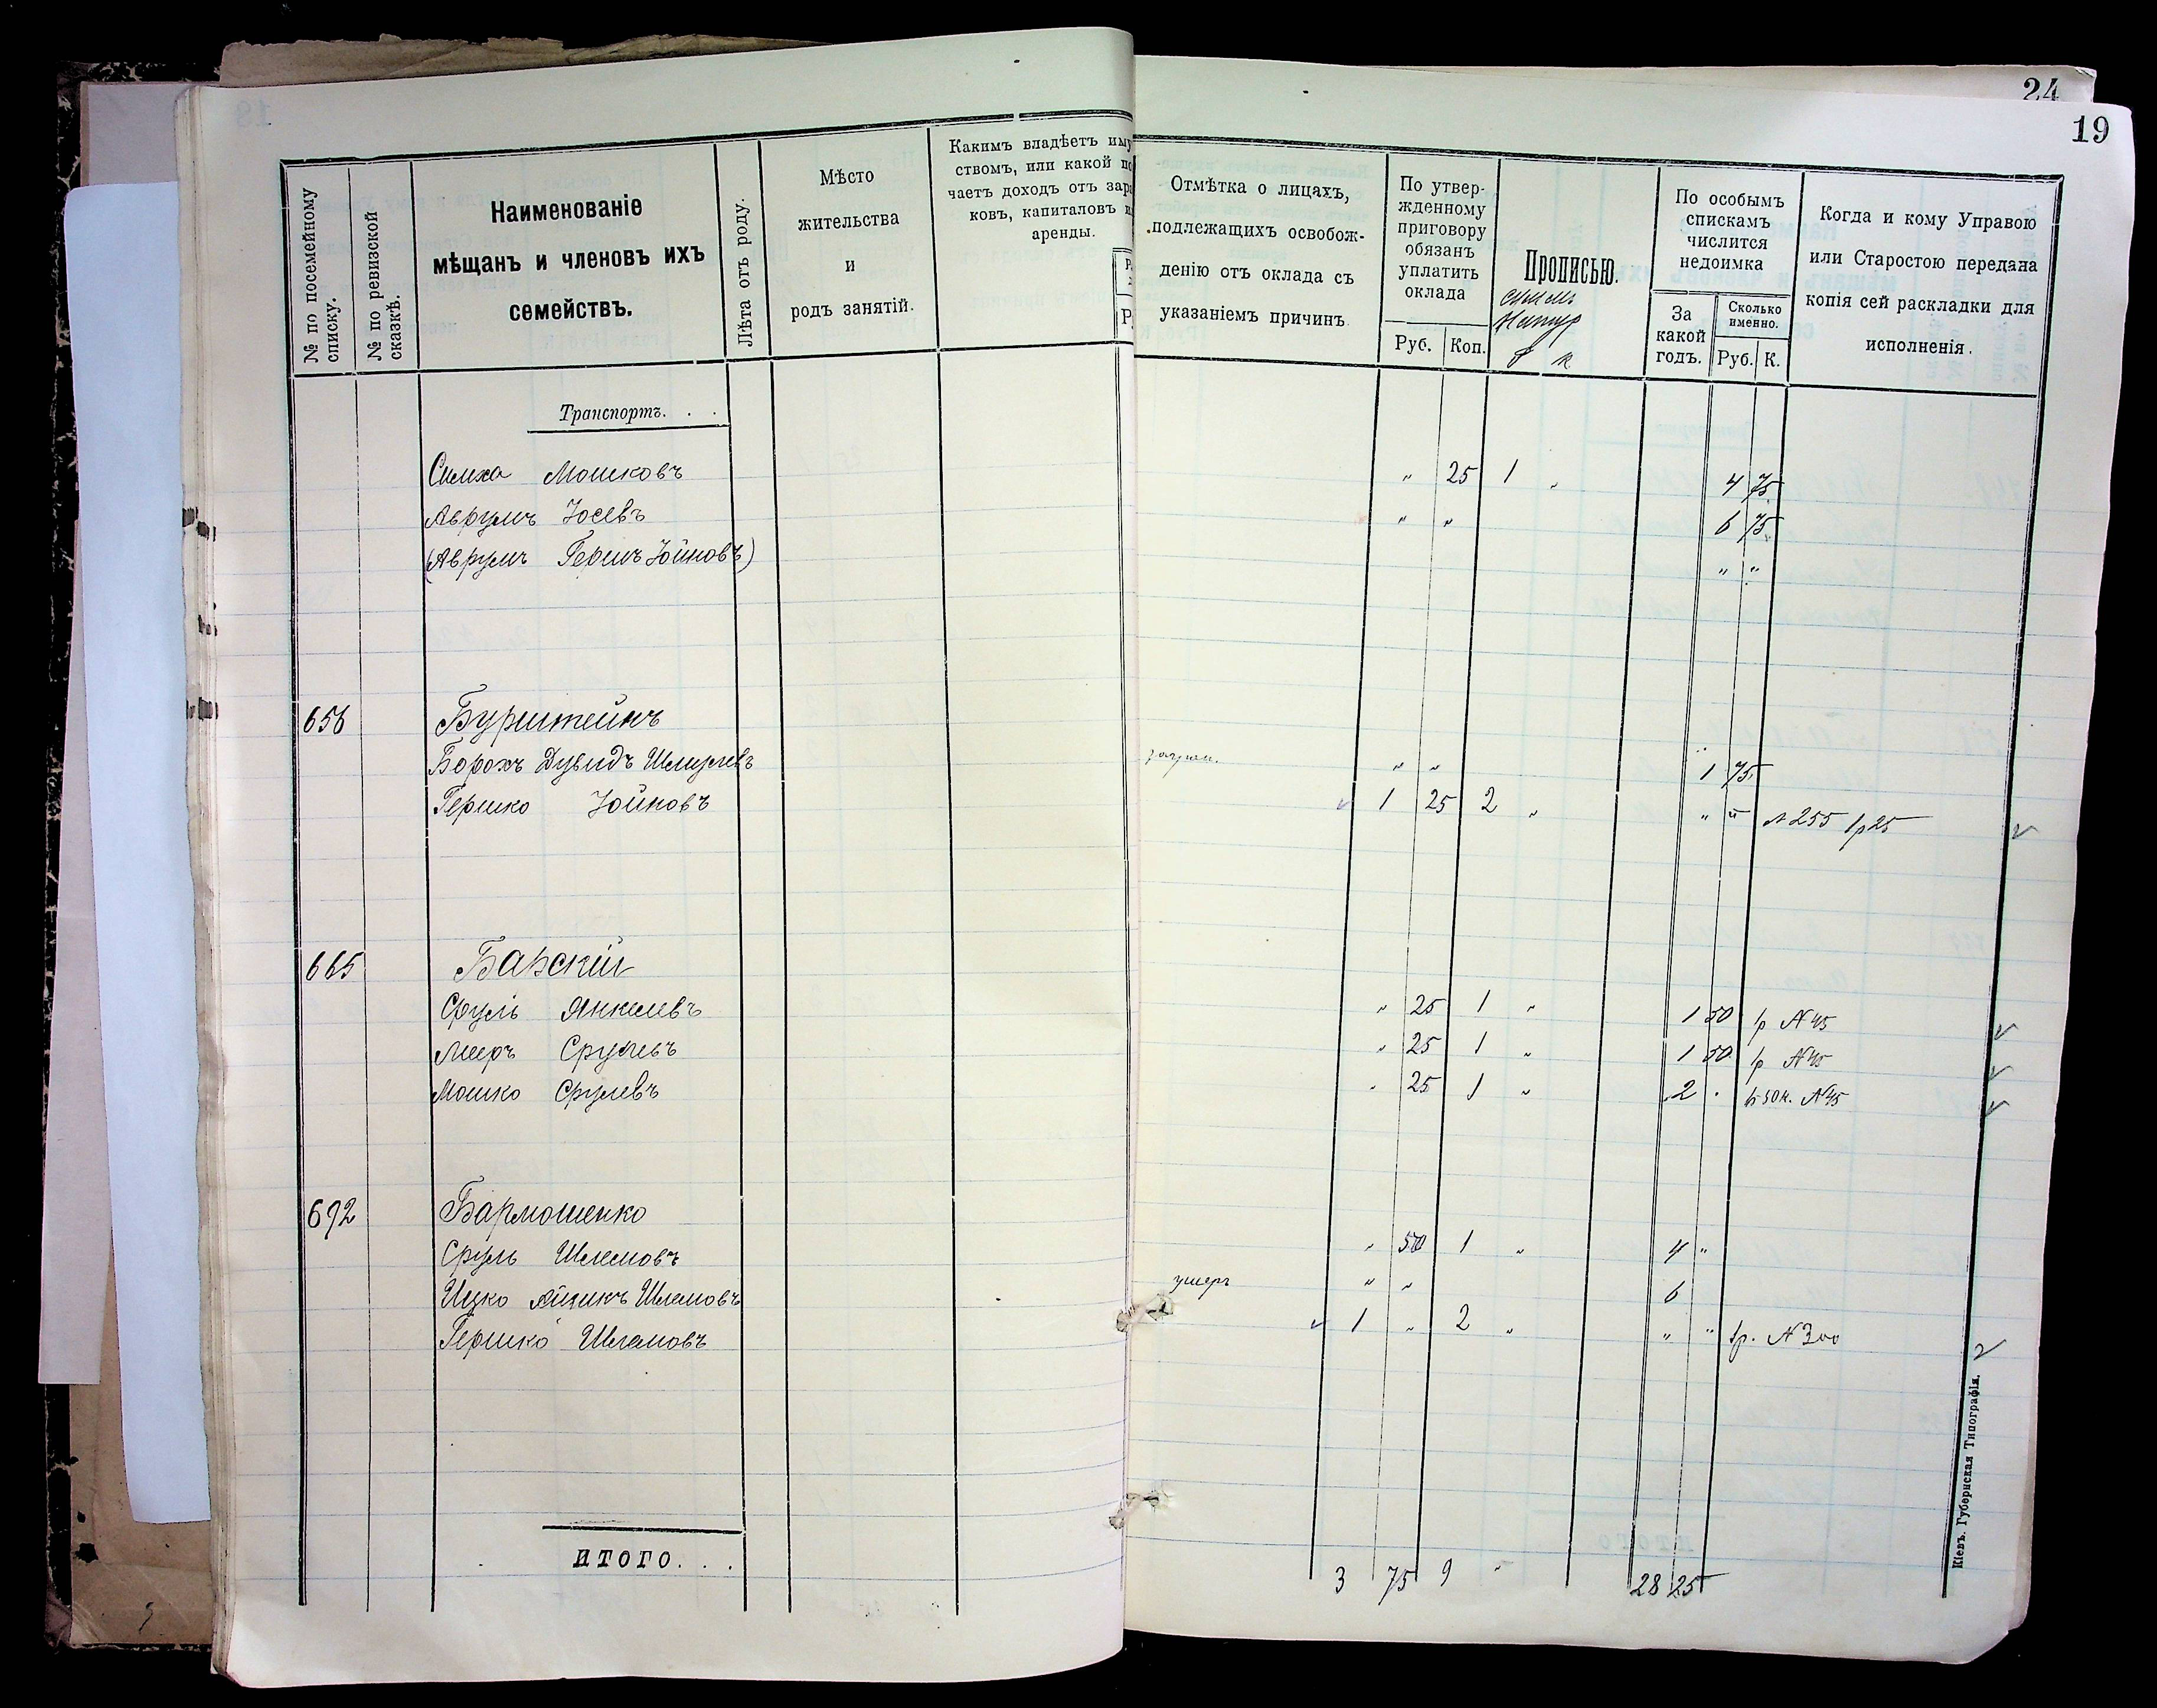 24
19
№ по посемейному списку.
№ по ревизской сказкѣ.
Наименованіе
мѣщанъ и членовъ ихъ
семействъ.
Лѣта отъ роду.
Мѣсто
жительства
и
родъ занятій.
Какимъ владѣетъ иму
ствомъ, или какой по
чаетъ доходъ отъ зара
ковъ, капиталовъ и
аренды.
Отмѣтка о лицахъ,
подлежащихъ освобож-
денію отъ оклада съ
указаніемъ причинъ
По утвер-
жденному
приговору
обязанъ
уплатить
оклада
Руб. Коп.
Прописью.
По особымъ
спискамъ
числится
недоимка
За
какой
годъ.
Сколько
именно.
Руб. К.
Когда и кому Управою
или Старостою передана
копія сей раскладки для
исполненія.
Транспортъ. . .
Симха Мошковъ " 25 1 " 4 75
Аврумъ Іосевъ " " 6 75
(Аврумъ Гершъ Іойновъ) " "
656 Бурштейнъ
Борохъ Дувидъ Шмулевъ " " 1 75
Гершко Іойновъ 1 25 2 " " " № 255 1р25
665 Барскій
Сруль Янкелевъ " 25 1 " 1 50 1р №45
Мееръ Срулевъ " 25 1 " 1 50 1р №45
Мошко Срулевъ " 25 1 " 2 " №45
692 Бармошенко
Сруль Шлемовъ " 50 1 " 4 "
Ицко Айзикъ Шлемовъ умеръ " " 6
Гершко Шлемовъ 1 " 2 " " " 1р. №300
ИТОГО. . . 3 75 9 " 28 25
Кіевъ. Губернская Типографія.